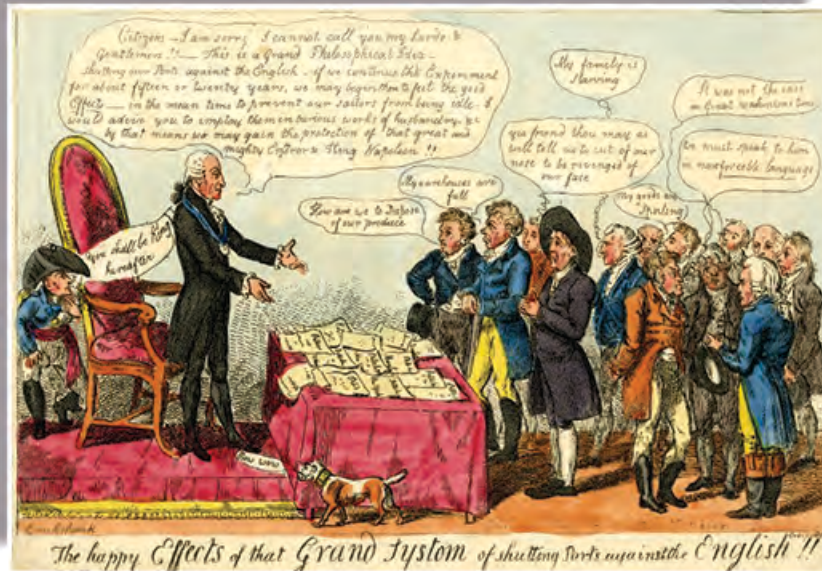 Citizens - I am sorry I cannot call you my Lords &
Gentlemen !! - This is a Grand Philosophical Idea -
shutting our Ports against the English - if we continue the Experiment
for about fifteen or twenty years, we may begin then to feel the good
Effects - in the mean time to prevent our sailors from being idle. I
would advise you to employ them in various works of husbandry. &c
by that means we may gain the protection of that great and
mighty Emperor & King Napoleon !!
You shall be King
hereafter
How are we to Dispose
of our produce
My warehouses are
full
My family is
Starving
yea friend thou may as
well tell us to cut of our
nose to be revenged of
our face
My goods are
Spoiling
It was not the case
in Great Washintons time
We must speak to him
in more forcible language
Bow wow
Cruikshank
The happy Effects of that Grand Systom of shutting Ports against the English !!